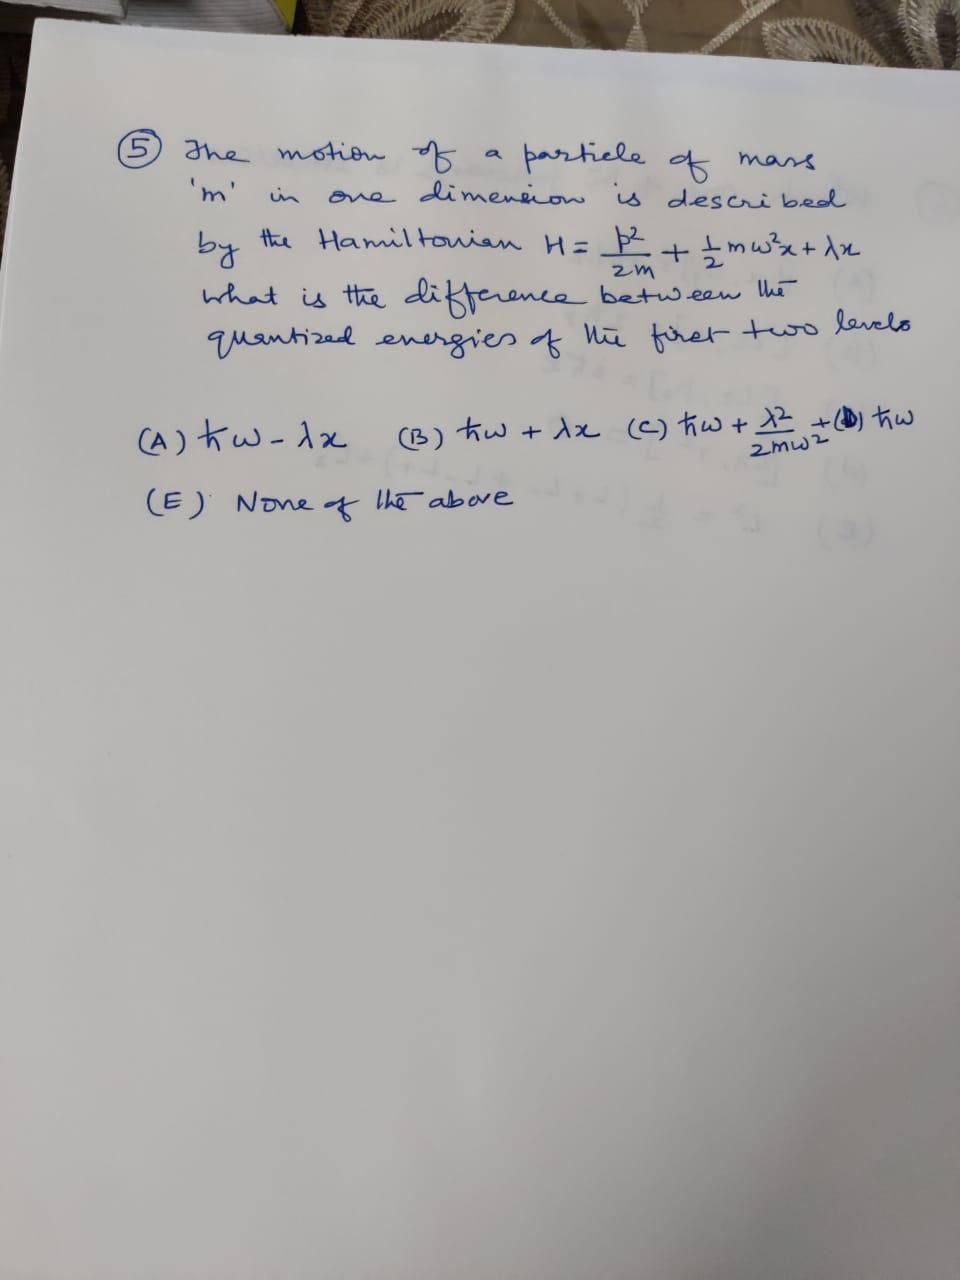 ⑤ The motion of a particle of mass
'm' in one dimension is described
by the Hamiltonian H = p²/2m + 1/2 mω²x + λx
what is the difference between the
quantized energies of the first two levels
(A) ħω - λx (B) ħω + λx (C) ħω + λ²/2mω² + (D) ħω
(E) None of the above